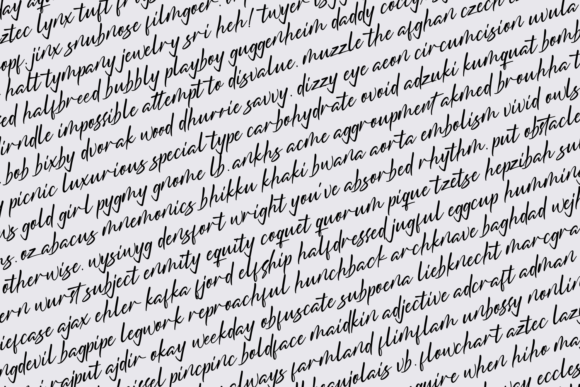 lynx tuft
jinx snubnose filmgoer
halt tympany jewelry sri heh! twyer
halfbreed bubbly playboy guggenheim daddy
dirndle impossible attempt to disvalue. muzzle the afghan czech
bob bixby dvorak wood dhurrie savvy. dizzy eye aeon circumcision uvula
picnic luxurious special type carbohydrate ovoid adzuki kumquat bomb
gold girl pygmy gnome lb. ankhs acme aggroupment akmed brouhha
oz abacus mnemonics bhikku khaki bwana aorta embolism vivid owls
otherwise. wysiwyg densfort wright you've absorbed rhythm. put obstacle
wurst subject enmity equity coquet quorum pique tzetse hepzibah
ajax ehler kafka fjord elfship halfdressed jugful eggcup humming
bagpipe legwork reproachful hunchback archknave baghdad
rajput ajdir okay weekday obfuscate subpoena liebknecht
pincpinc boldface maidkin adjective adcraft adman
always farmland flimflam unbossy
beaujolais vb. flowchart aztec
when hiho